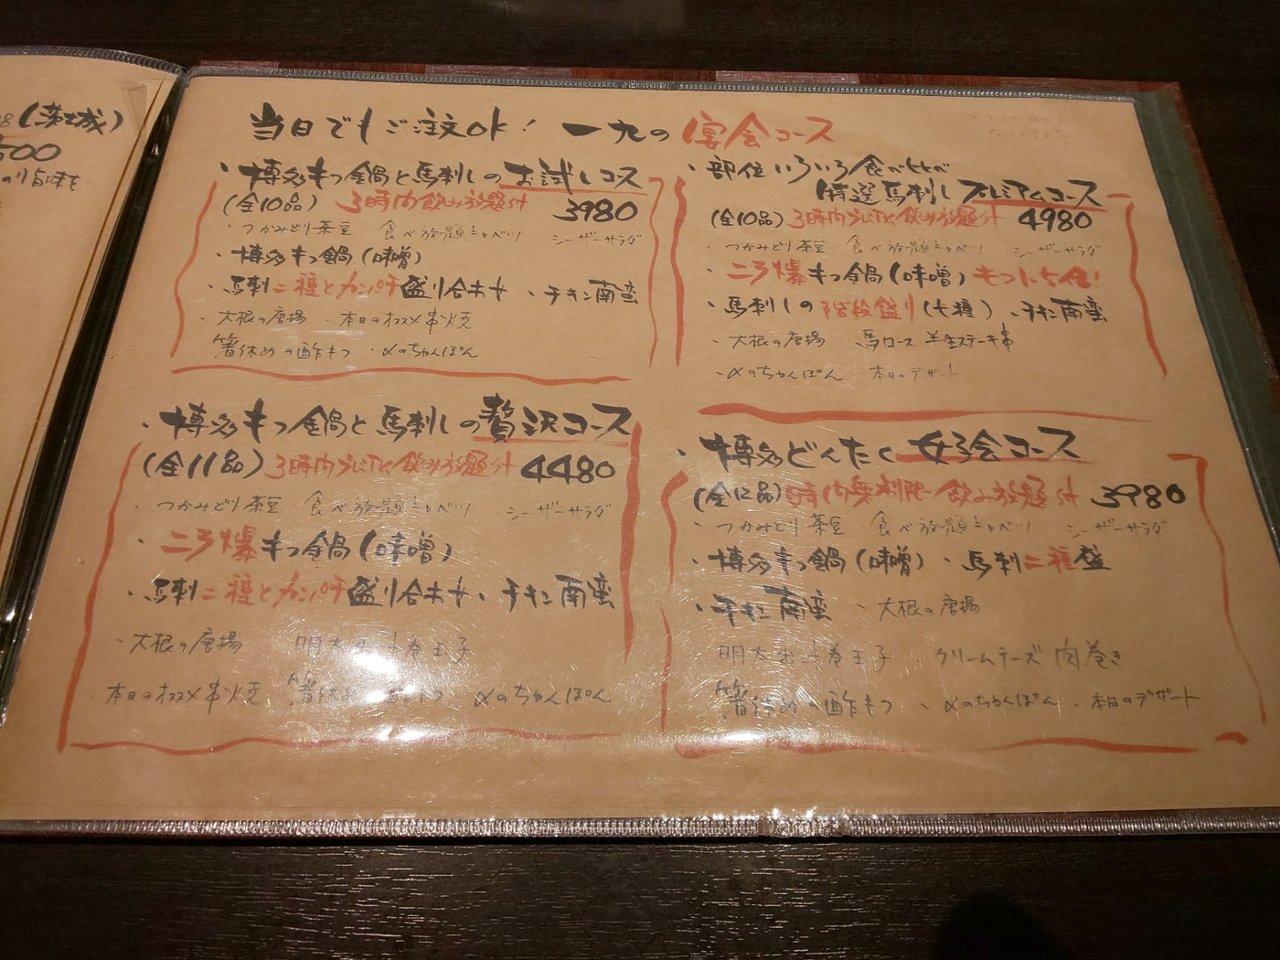 (薄塩)
500
当日でもご注文ok! 一九の宴会コース
・博多もつ鍋と馬刺しのお試しコース
(全10品) 3時間飲み放題付 3980
・つかみどり茶豆 食べ放題キャベツ シーザーサラダ
・博多もつ鍋(味噌)
・馬刺二種とカンパチ盛り合わせ ・チキン南蛮
・大根の唐揚 ・本日のオススメ串焼
箸休めの酢もつ ・〆のちゃんぽん
・部位いろいろ食べくらべ
特選馬刺しプレミアムコース
(全10品) 3時間プレミアム飲み放題付 4980
・つかみどり茶豆 食べ放題キャベツ シーザーサラダ
・ニラ爆もつ鍋(味噌) もつ1.5倍!
・馬刺しの階段盛り(七種) ・チキン南蛮
・大根の唐揚 ・馬ロース半生ステーキ串
・〆のちゃんぽん ・本日のデザート
・博多もつ鍋と馬刺しの贅沢コース
(全11品) 3時間プレミアム飲み放題付 4480
・つかみどり茶豆 食べ放題キャベツ シーザーサラダ
・ニラ爆もつ鍋(味噌)
・馬刺二種とカンパチ盛り合わせ ・チキン南蛮
・大根の唐揚 明太出汁巻玉子
本日のオススメ串焼 箸休めの酢もつ ・〆のちゃんぽん
・博多どんたく女子会コース
(全12品) 時間無制限飲み放題付 3980
・つかみどり茶豆 食べ放題キャベツ シーザーサラダ
・博多もつ鍋(味噌) ・馬刺二種盛
・チキン南蛮 ・大根の唐揚
明太出汁巻玉子 ・クリームチーズ肉巻き
箸休めの酢もつ ・〆のちゃんぽん ・本日のデザート